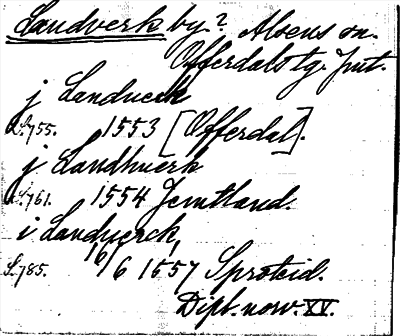 Landverk by? Alsens sn.
Offerdals tg. Jmt.
j Landuerk
S. 755. 1553 [Offerdal].
j Landhuerk
S. 761. 1554 Jemtland.
i Landuerck,
S. 785. 16/6 1557 Sproteid.
Dipl. norv. XV.